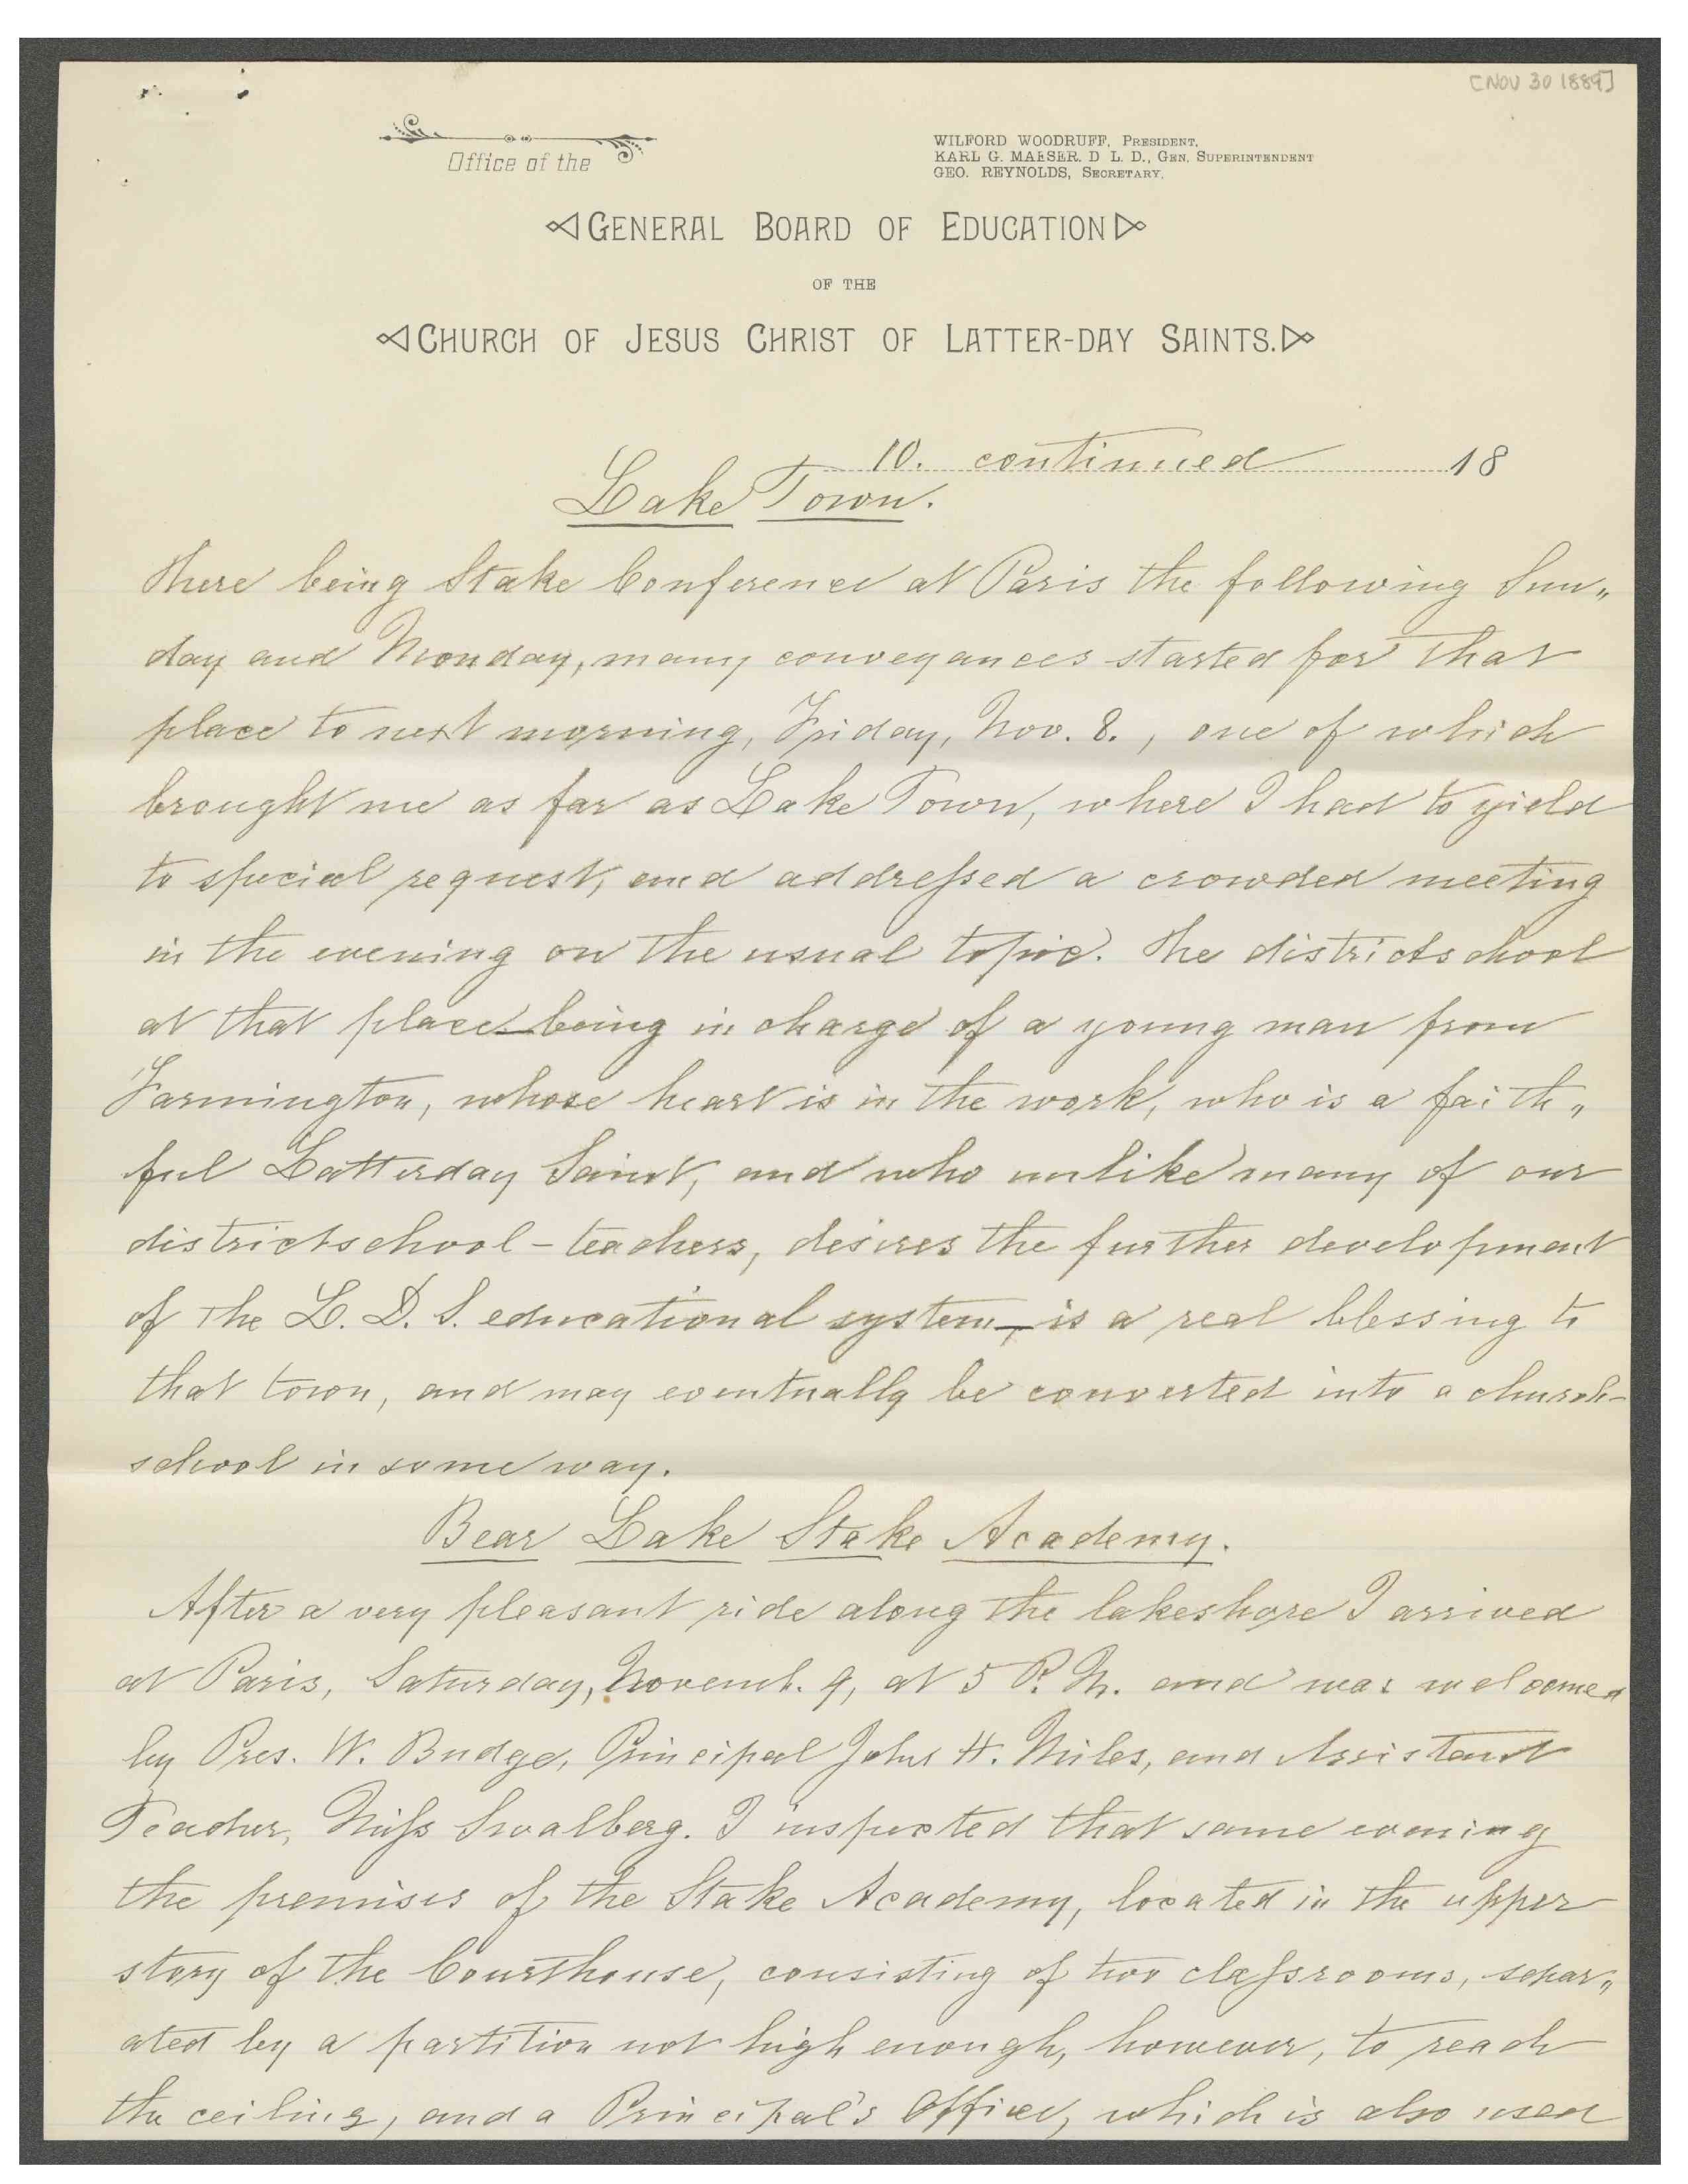 [NOV 30 1889]
Office of the
WILFORD WOODRUFF, PRESIDENT,
KARL G. MAESER. D L. D., GEN. SUPERINTENDENT
GEO. REYNOLDS, SECRETARY.
GENERAL BOARD OF EDUCATION
OF THE
CHURCH OF JESUS CHRIST OF LATTER-DAY SAINTS.
10. continued 18
Lake Town.
There being Stake Conference at Paris the following Sun„
day and Monday, many conveyances started for that
place to next morning, Friday, Nov. 8., one of which
brought me as far as Lake Town, where I had to yield
to special request, and addressed a crowded meeting
in the evening on the usual topic. The districtschool
at that place—being in charge of a young man from
Farmington, whose heart is in the work, who is a faith„
ful Latterday Saint, and who unlike many of our
districtschool-teachers, desires the further development
of the L. D. S. educational system,—is a real blessing to
that town, and may eventually be converted into a church-
school in some way.
Bear Lake Stake Academy.
After a very pleasant ride along the lakeshore I arrived
at Paris, Saturday, Novemb. 9, at 5 P. M. and was welcomed
by Pres. W. Budge, Principal John H. Miles, and Assistant
Teacher, Miss Swalberg. I inspected that same evening
the premises of the Stake Academy, located in the upper
story of the Courthouse, consisting of two classrooms, separ„
ated by a partition not high enough, however, to reach
the ceiling, and a Principal's Office, which is also used